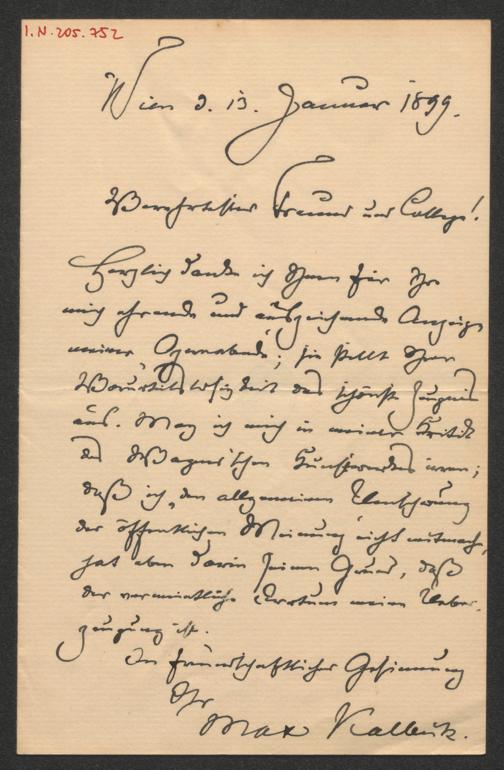 I.N. 205.752
Wien d. 13. Januar 1899.
Verehrtester Freund und College!
Herzlich danke ich Ihnen für Ihre
mich ehrende und auszeichnende Anzeige
meiner „Opernabende"; sie stellt Ihrer
Vorurtheilslosigkeit das schönste Zeugnis
aus. Mag ich mich in meiner Kritik
des Wagner'schen Kunstwerkes irren;
daß ich „den allgemeinen Umschwung
der öffentlichen Meinung" nicht mitmache,
hat eben darin seinen Grund, daß
der vermeintliche Irrtum meine Ueber-
zeugung ist.
In freundschaftlicher Gesinnung
Ihr
Max Kalbeck.